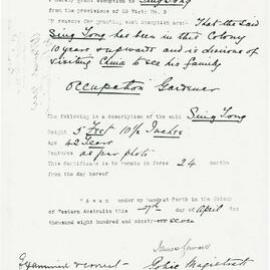 I hereby grant exemption to Sing Tong
from the provisions of 53 Vict: No. 3
my reasons for granting such exemption are:- That the said
Sing Tong has been in this Colony
10 years upwards and is desirous of
visiting China to see his family
Occupation Gardener
The following is a description of the said Sing Tong
Height 5 Feet 10½ Inches
Age 42 Years
Features as per photo
This Certificate is to remain in force 24
months
from the day hereof
Given under my hand at Perth in the Colony
of Western Australia this 7th day of April
thousand eight hundred and ninety seven
Police Magistrate
Examined &
correct